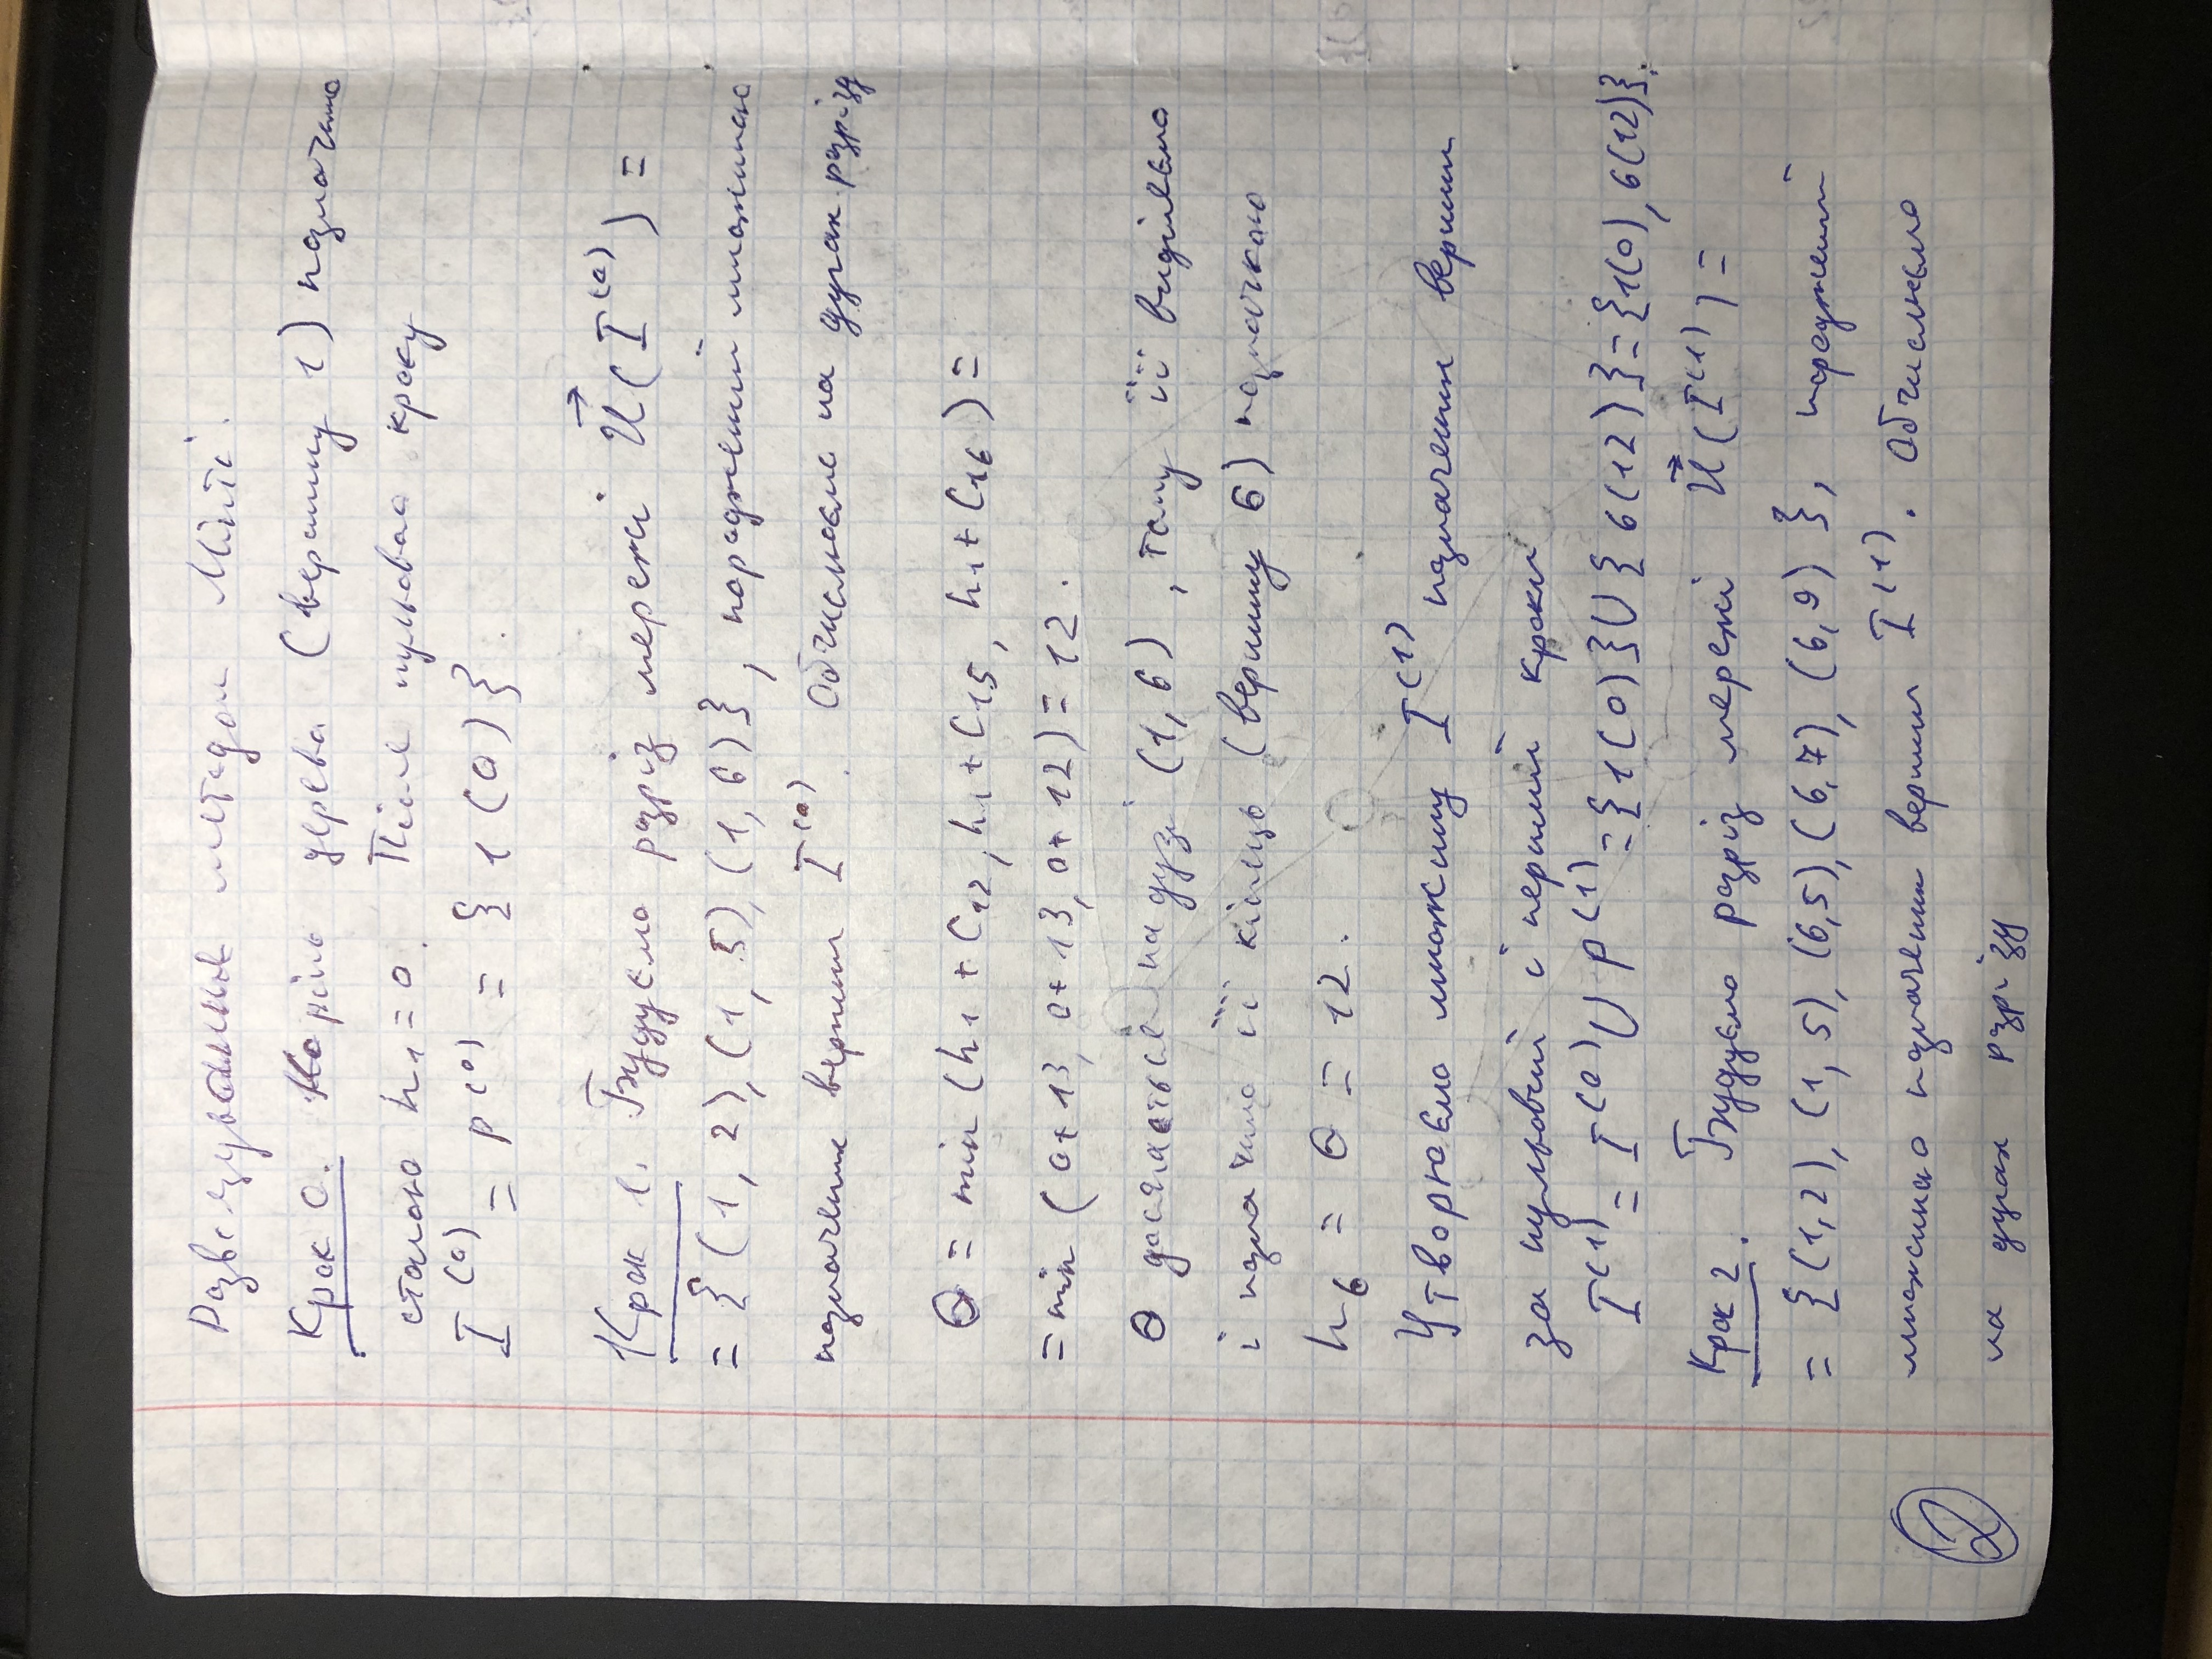 Розв'язування методом Мінті.
Крок 0. Корінь дерева (вершину 1) позначимо
сталою h₁ = 0. Після нульового кроку
I⁽⁰⁾ = P⁽⁰⁾ = { 1 (0) }.
Крок 1. Будуємо розріз мережі U⃗(I⁽⁰⁾) =
= { (1, 2), (1, 5), (1, 6) }, породжений множиною
позначених вершин I⁽⁰⁾. Обчислюємо на дугах розрізу
Θ = min (h₁ + C₁₂, h₁ + C₁₅, h₁ + C₁₆) =
= min (0+13, 0+13, 0+12) = 12.
Θ досягається на дузі (1, 6), тому її виділяємо
і позначимо її кінець (вершину 6) позначкою
h₆ = Θ = 12.
Утворюємо множину I⁽¹⁾ позначених вершин
за нульовий і перший кроки
I⁽¹⁾ = I⁽⁰⁾ ∪ P⁽¹⁾ = {1(0)} ∪ {6(12)} = {1(0), 6(12)}.
Крок 2. Будуємо розріз мережі U⃗(I⁽¹⁾) =
= {(1,2), (1, 5), (6,5), (6,7), (6,9) }, породжений
множиною позначених вершин I⁽¹⁾. Обчислюємо
на дугах розрізу
2